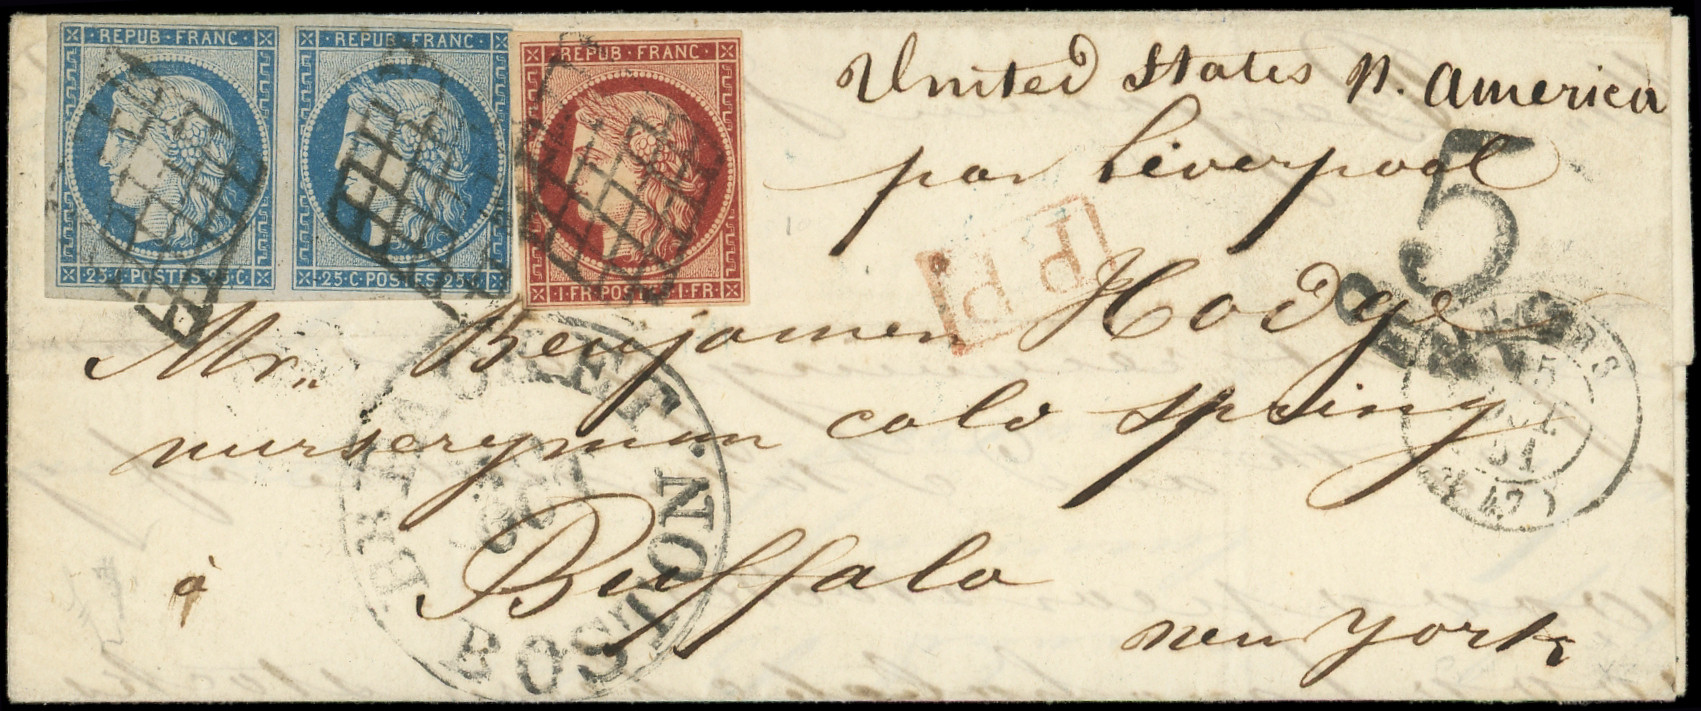 REPUB·FRANC·
REPUB·FRANC·
REPUB·FRANC·
25·C·POSTES·25·C·
25·C·POSTES·25·C·
1·FR·POSTES·1·FR·
United States N. America
par Liverpool
5
CENTS
PP
Mr. Benjamen Hodge
nurseryman cold spring
à Buffalo
new York
BR. PACKET
BOSTON.
ANGERS
15
51
(47)